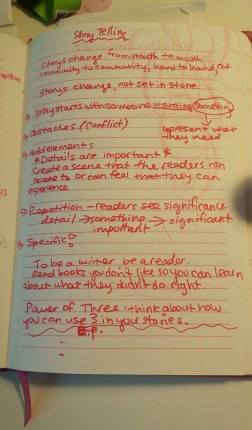 Story Telling
Storys change from mouth to mouth
community to community, hand to hand, ect
Storys change, not set in stone.
Story starts with someone wanting something
represent what
they need
Obstacles (Conflict)
Add elements
* Details are important *
Create a scene that the readers can
relate to or can feel that they can
experience.
Repetition - readers see significance
detail → something → significant
important
Specific!
To be a writer be a reader.
Read books you don't like so you can learn
about what they didn't do right.
Power of Three: think about how
you can use 3 in your stories.